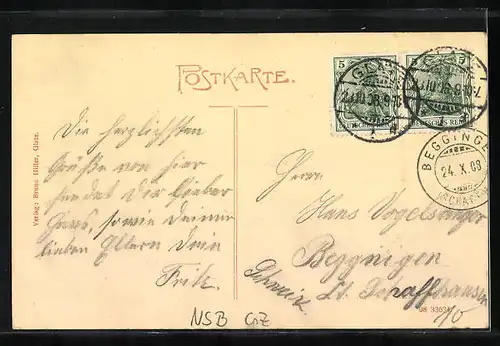 POSTKARTE.
Die herzlichsten
Grüße von hier
sendet Dir lieber
Hans, sowie Deinen
lieben Eltern Dein
Fritz.
Herrn
Hans Vogelsanger
Beggingen
Schweiz Kt. Schaffhausen
5
5
GLATZ
DEUTSCHES REICH
BEGGINGEN
24.X.08
Verlag: Bruno Hiller, Glatz.
08
NSB GZ